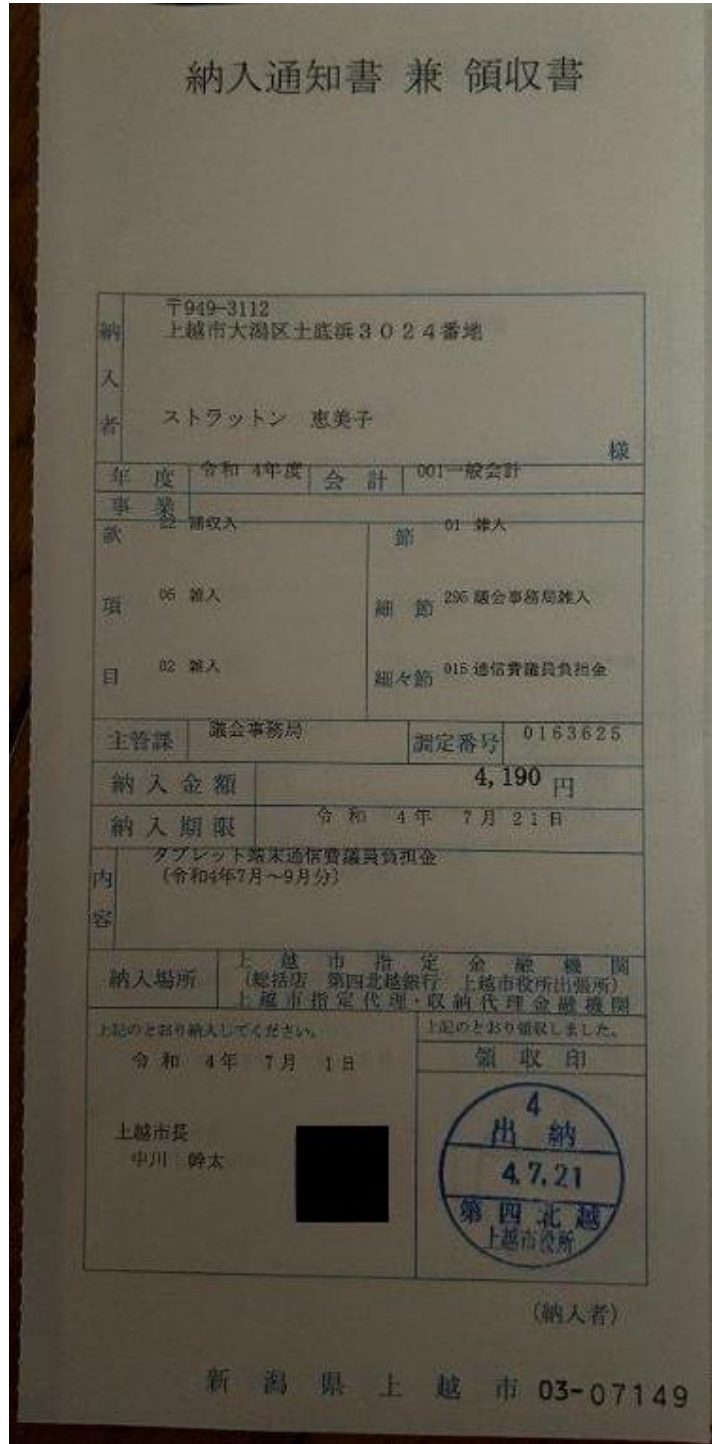 納入通知書 兼 領収書
納入者
〒949-3112
上越市大潟区土底浜3024番地
ストラットン 恵美子
様
年度 令和 4年度 会計 001一般会計
事業
款 22 諸収入 節 01 雑入
項 05 雑入 細節 295 議会事務局雑入
目 02 雑入 細々節 015 通信費議員負担金
主管課 議会事務局 調定番号 0163625
納入金額 4,190 円
納入期限 令和 4年 7月21日
内容
タブレット端末通信費議員負担金
(令和4年7月~9月分)
納入場所
上越市指定金融機関
(総括店 第四北越銀行 上越市役所出張所)
上越市指定代理・収納代理金融機関
上記のとおり納入してください。
令和 4年 7月 1日
上越市長
中川 幹太
上記のとおり領収しました。
領収印
4
出納
4.7.21
第四北越
上越市役所
(納入者)
新潟県上越市 03-07149